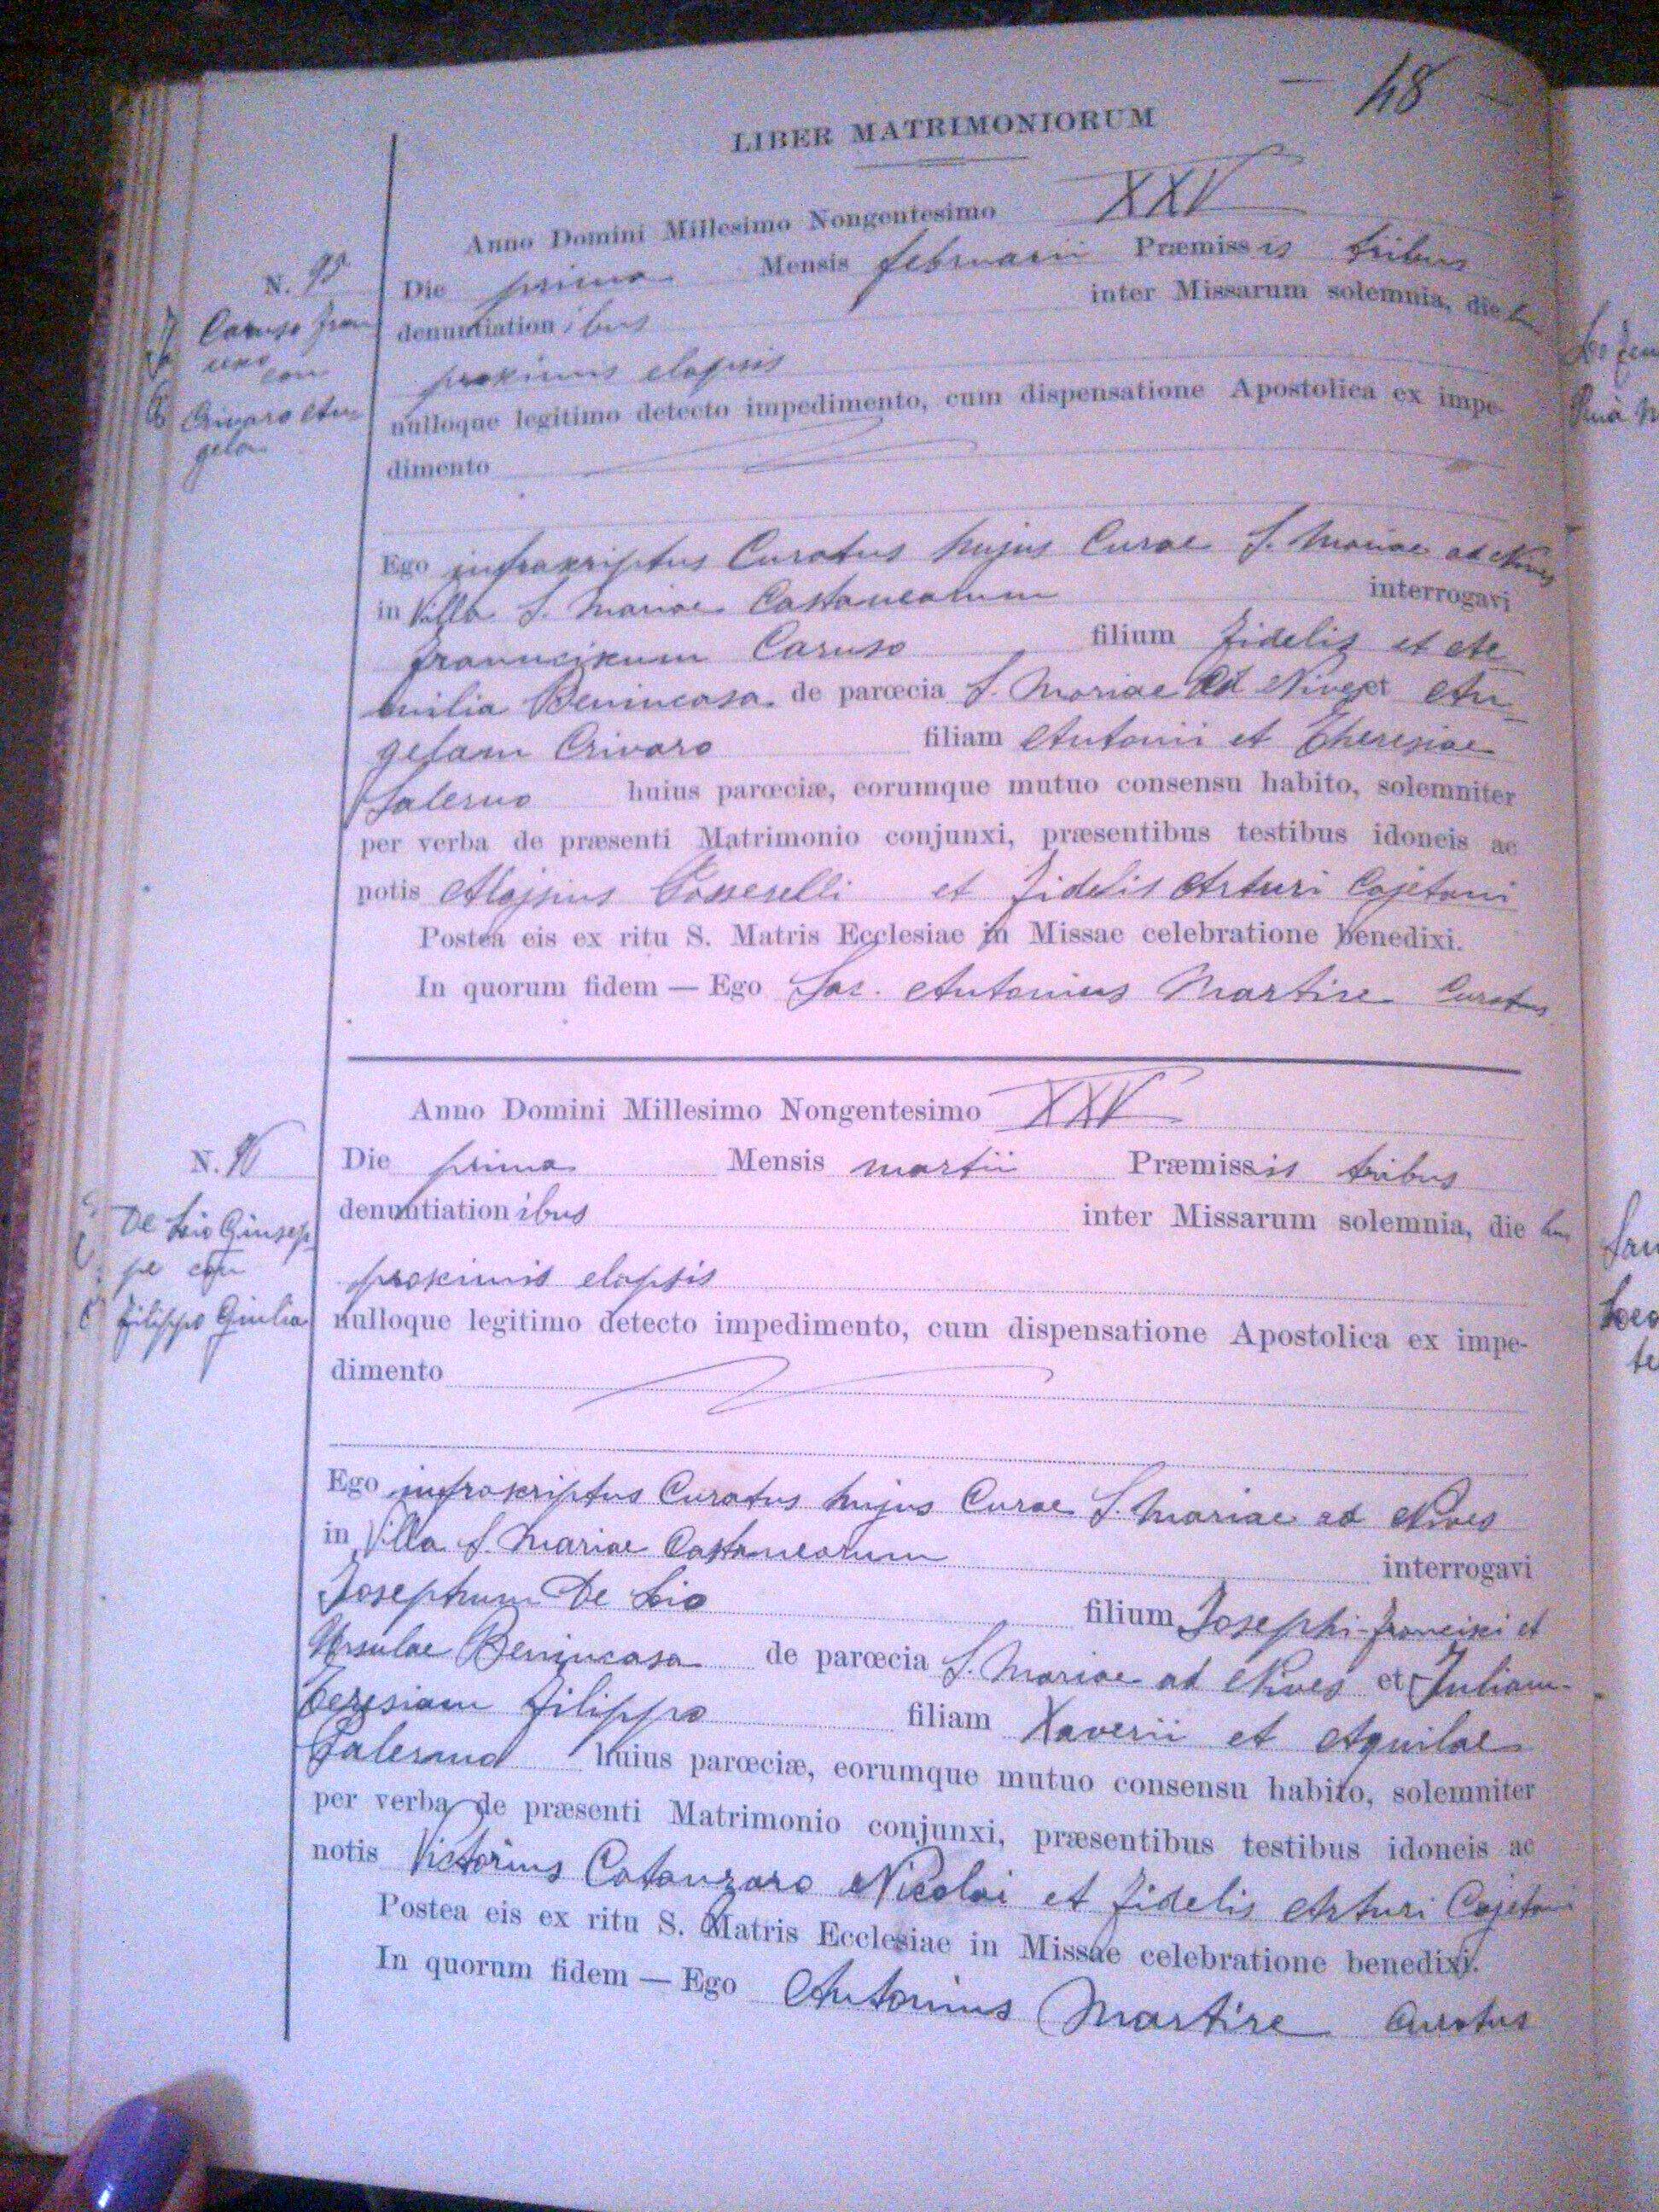 48
LIBER MATRIMONIORUM
Anno Domini Millesimo Nongentesimo XXV
N. 95
Die prima Mensis februarii Præmissis tribus
denuntiationibus inter Missarum solemnia, die
proximis elapsis
nulloque legitimo detecto impedimento, cum dispensatione Apostolica ex impe-
dimento
Caruso Fran
con
Crivaro An
gela
Ego infrascriptus Curatus hujus Curae S. Mariae ad Nives
in Villa S. Mariae Castanearum interrogavi
Franciscum Caruso filium Fidelis et Ae
milia Benincasa de parœcia S. Mariae ad Nives et An
gelam Crivaro filiam Antonii et Theresiae
Salerno huius parœciæ, eorumque mutuo consensu habito, solemniter
per verba de præsenti Matrimonio conjunxi, præsentibus testibus idoneis ac
notis Aloysius et Fidelis Arturi Cajetani
Postea eis ex ritu S. Matris Ecclesiae in Missae celebratione benedixi.
In quorum fidem — Ego Sac. Antonius Martire Curatus
Anno Domini Millesimo Nongentesimo XXV
N. 96
Die prima Mensis martii Præmissis tribus
denuntiationibus inter Missarum solemnia, die
proximis elapsis
nulloque legitimo detecto impedimento, cum dispensatione Apostolica ex impe-
dimento
De Lio Giusep
pe con
Filippo Giulia
Ego infrascriptus Curatus hujus Curae S. Mariae ad Nives
in Villa S. Mariae Castanearum interrogavi
Josephum De Lio filium Josephi-Francisci et
Ursulae Benincasa de parœcia S. Mariae ad Nives et Juliam-
Teresiam Filippo filiam Xaverii et Aquilae
Salerno huius parœciæ, eorumque mutuo consensu habito, solemniter
per verba de præsenti Matrimonio conjunxi, præsentibus testibus idoneis ac
notis Victorius Catanzaro Nicolai et Fidelis Arturi Cajetani
Postea eis ex ritu S. Matris Ecclesiae in Missae celebratione benedixi.
In quorum fidem — Ego Antonius Martire Curatus